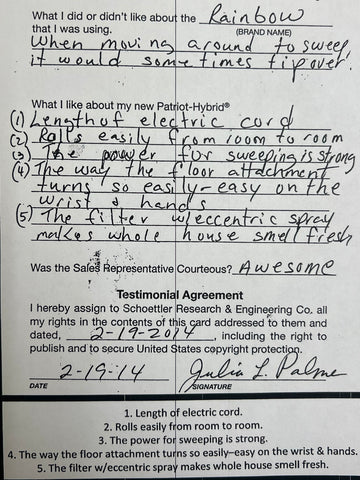 What I did or didn't like about the Rainbow
that I was using. (BRAND NAME)
When moving around to sweep
it would sometimes tip over.
What I like about my new Patriot-Hybrid®
(1) Length of electric cord
(2) Rolls easily from room to room
(3) The power for sweeping is strong
(4) The way the floor attachment
turns so easily-easy on the
wrist & hands
(5) The filter w/eccentric spray
makes whole house smell fresh
Was the Sales Representative Courteous? Awesome
Testimonial Agreement
I hereby assign to Schoettler Research & Engineering Co. all
my rights in the contents of this card addressed to them and
dated, 2-19-2014, including the right to
publish and to secure United States copyright protection.
2-19-14 Julia L. Palme
DATE SIGNATURE
1. Length of electric cord.
2. Rolls easily from room to room.
3. The power for sweeping is strong.
4. The way the floor attachment turns so easily–easy on the wrist & hands.
5. The filter w/eccentric spray makes whole house smell fresh.